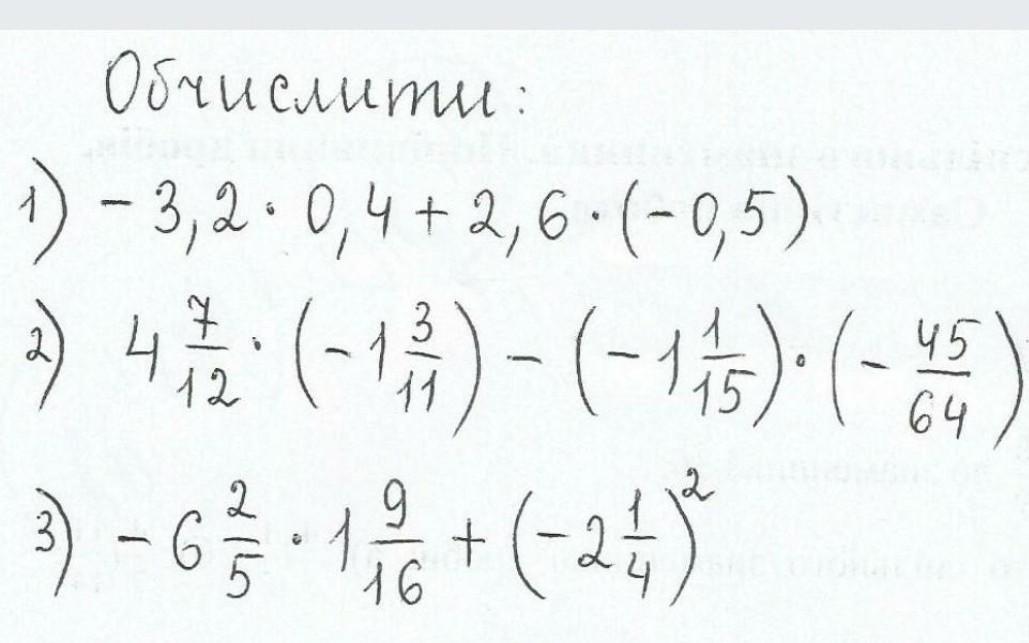 Обчислити:
1) - 3,2 · 0,4 + 2,6 · (- 0,5)
2) 4 7/12 · (- 1 3/11) - (- 1 1/15) · (- 45/64)
3) - 6 2/5 · 1 9/16 + (- 2 1/4)²